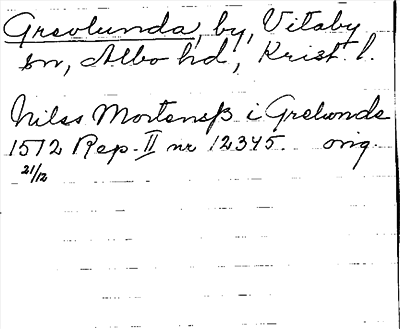 Grevlunda, by, Vitaby
sn, Albo hd, Krist. l.
Nilss Mortensß i Grelunde
1572 Rep. II nr 12345. orig.
21/12